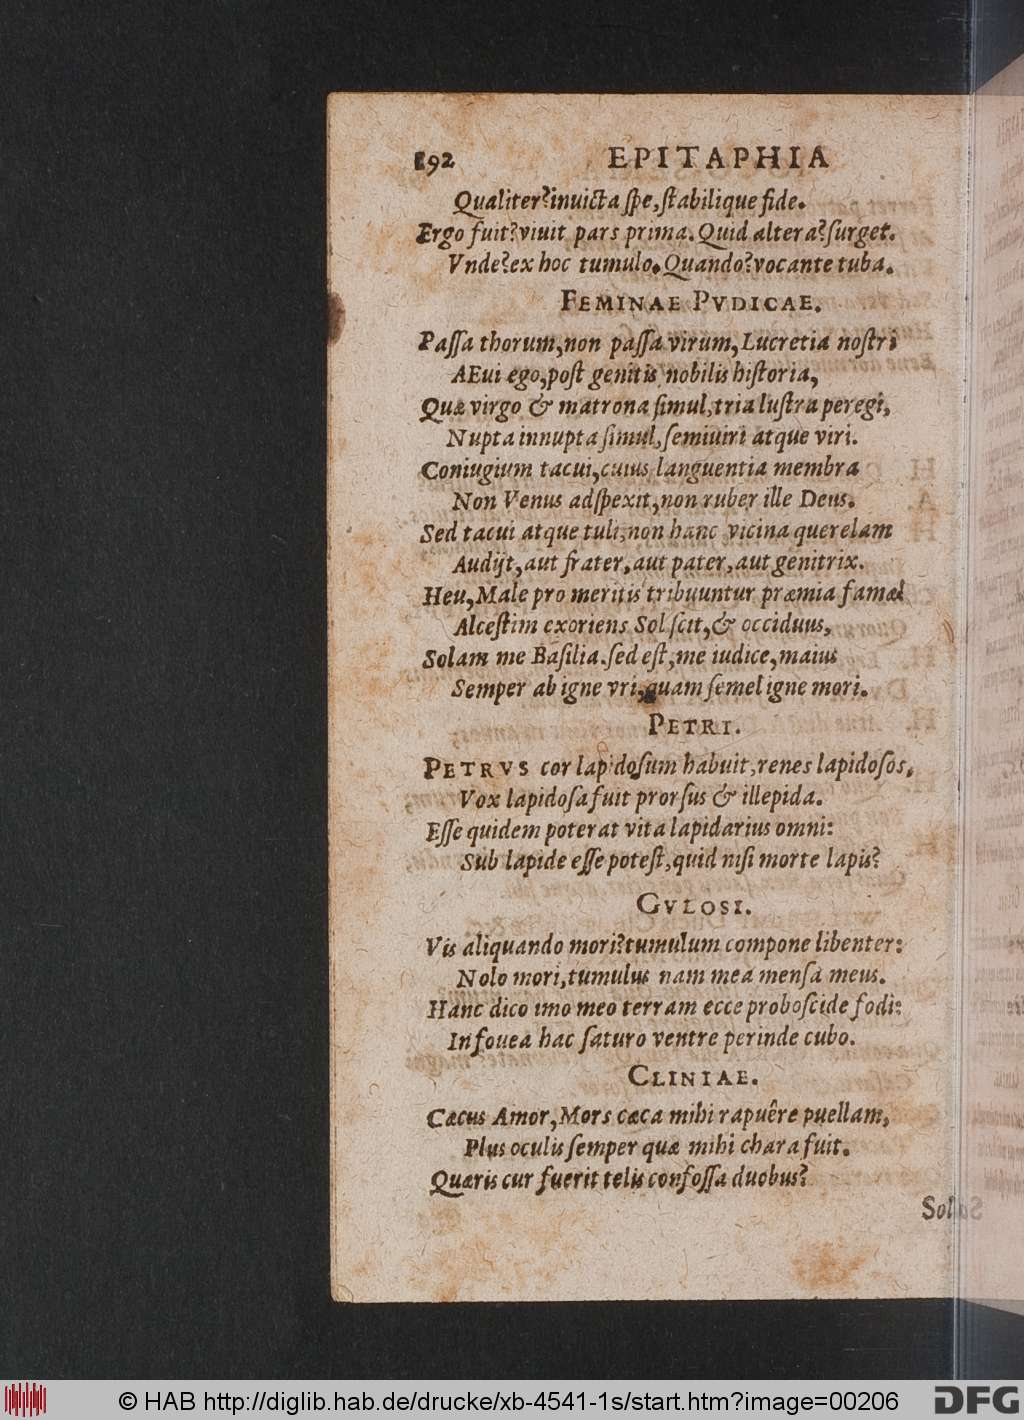 192 EPITAPHIA
Qualiter? inuicta spe, stabilique fide.
Ergo fuit? viuit pars prima. Quid altera? surget.
Vnde? ex hoc tumulo. Quando? vocante tuba.
FEMINAE PVDICAE.
Passa thorum, non passa virum, Lucretia nostri
AEui ego, post genitis nobilis historia,
Quæ virgo & matrona simul, tria lustra peregi,
Nupta innupta simul, semiuiri atque viri.
Coniugium tacui, cuius languentia membra
Non Venus adspexit, non ruber ille Deus.
Sed tacui atque tuli, non hanc vicina querelam
Audijt, aut frater, aut pater, aut genitrix.
Heu, Male pro meritis tribuuntur præmia famæ!
Alcestim exoriens Sol scit, & occiduus,
Solam me Basilia. sed est, me iudice, maius
Semper ab igne vri, quam semel igne mori.
PETRI.
PETRVS cor lapidosum habuit, renes lapidosos,
Vox lapidosa fuit prorsus & illepida.
Esse quidem poterat vita lapidarius omni:
Sub lapide esse potest, quid nisi morte lapis?
GVLOSI.
Vis aliquando mori? tumulum compone libenter:
Nolo mori, tumulus nam mea mensa meus.
Hanc dico imo meo terram ecce proboscide fodi:
In fouea hac saturo ventre perinde cubo.
CLINIAE.
Cæcus Amor, Mors cæca mihi rapuêre puellam,
Plus oculis semper quæ mihi chara fuit.
Quæris cur fuerit telis confossa duobus?
Sola
© HAB http://diglib.hab.de/drucke/xb-4541-1s/start.htm?image=00206
DFG